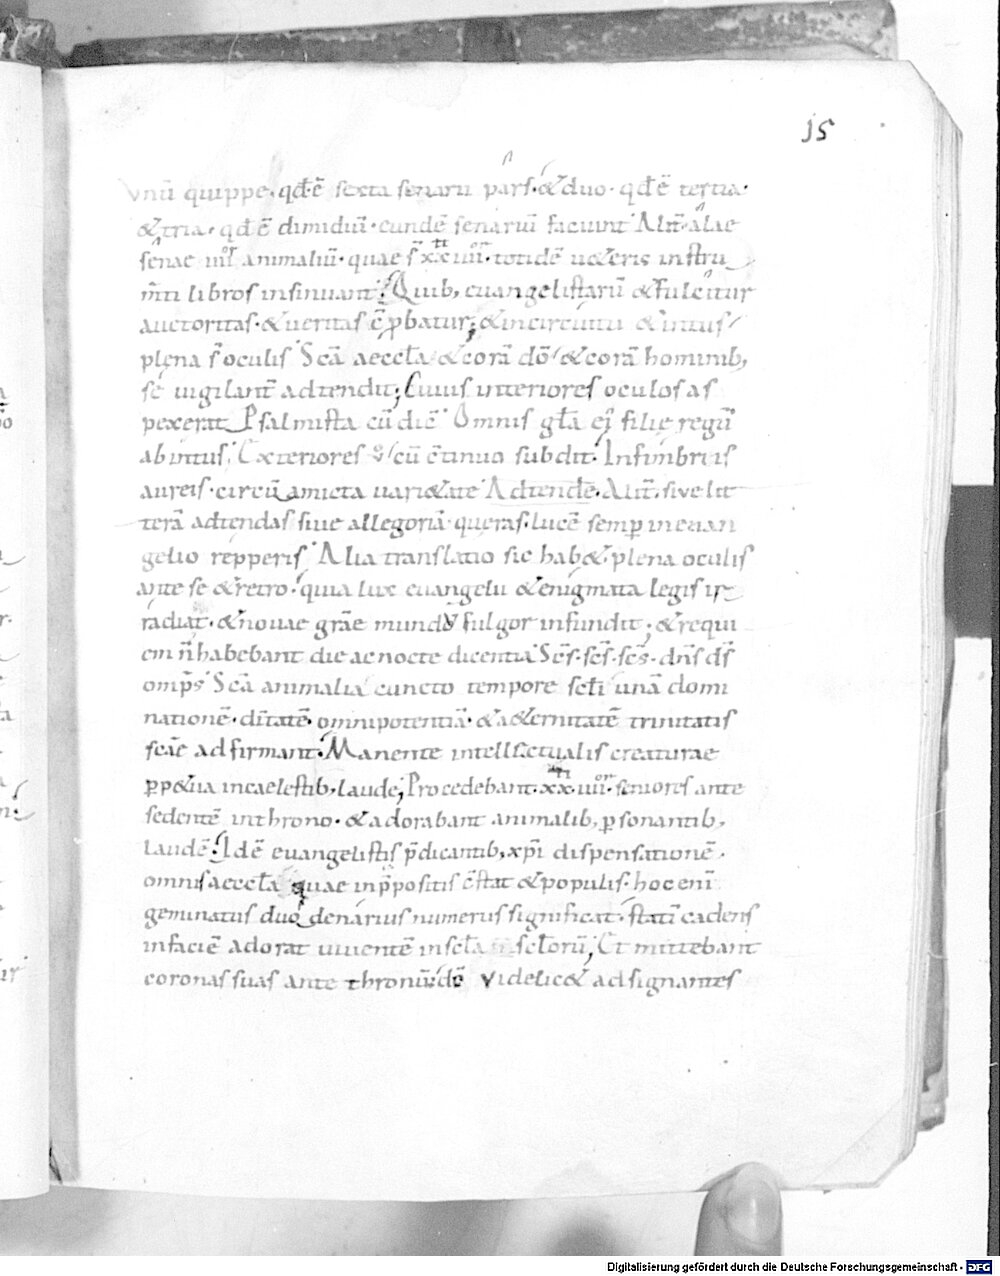 15
vnū quippe · qđ ē sexta senarii pars · & duo · qđ ē tertia ·
& tria · qđ ē dimidiū · eundē senariū faciunt Alit̄ · alae
senae iiiior animaliū · quae s̄ xxti iiiior · totidē ueteris instru
m̄ti libros insinuant · Quib; euangelistarū & fulcitur
auctoritas · & ueritas ē ꝓbatur; & in circuitu & intus
plena s̄ oculis Scā aeccƚa & corā dō & corā hominib;
sē uigilant̄ adtendit; Cuius interiores oculos as
pexerat Psalmista cū dic̄ Omnis gƚa ej filię regū
ab intus; Exteriores cū c̄tinuo subdit · In fimbriis
aureis · circū amicta uarietate Adtende · Alit̄ · siue lit
terā adtendas siue allegoriā queras · lucē semꝑ in euan
gelio repperis Alia translatio sic hab& plena oculis
ante se & retro · quia lux euangelii & enigmata legis ir
radiat · & nouae grāe mundo fulgor infundit; & requi
em n̄ habebant die ac nocte dicentia Sc̄s · sc̄s · sc̄s · dn̄s ds̄
omp̄s Scā animalia cuncto tempore scƚi unā domi
nationē · dītatē omnipotentiā · & a&ernitatē trinitatis
scāe adfirmant · Manente intellectualis creaturae
ꝑp&ua in caelestib; laude; Procedebant · xxti iiiior · seniores ante
sedentē in throno · & adorabant animalib; ꝑsonantib;
laudē · Idē euangelistis p̄dicantib; xp̄i dispensationē ·
omnis aeccƚa quae in p̄positis c̄stat & populis · hoc enī
geminatus duodenarius numerus significat · statī cadens
in faciē adorat uiuentē in scƚa scƚorū; Et mittebant
coronas suas ante thronū dī Videlic& adsignantes
Digitalisierung gefördert durch die Deutsche Forschungsgemeinschaft - DFG